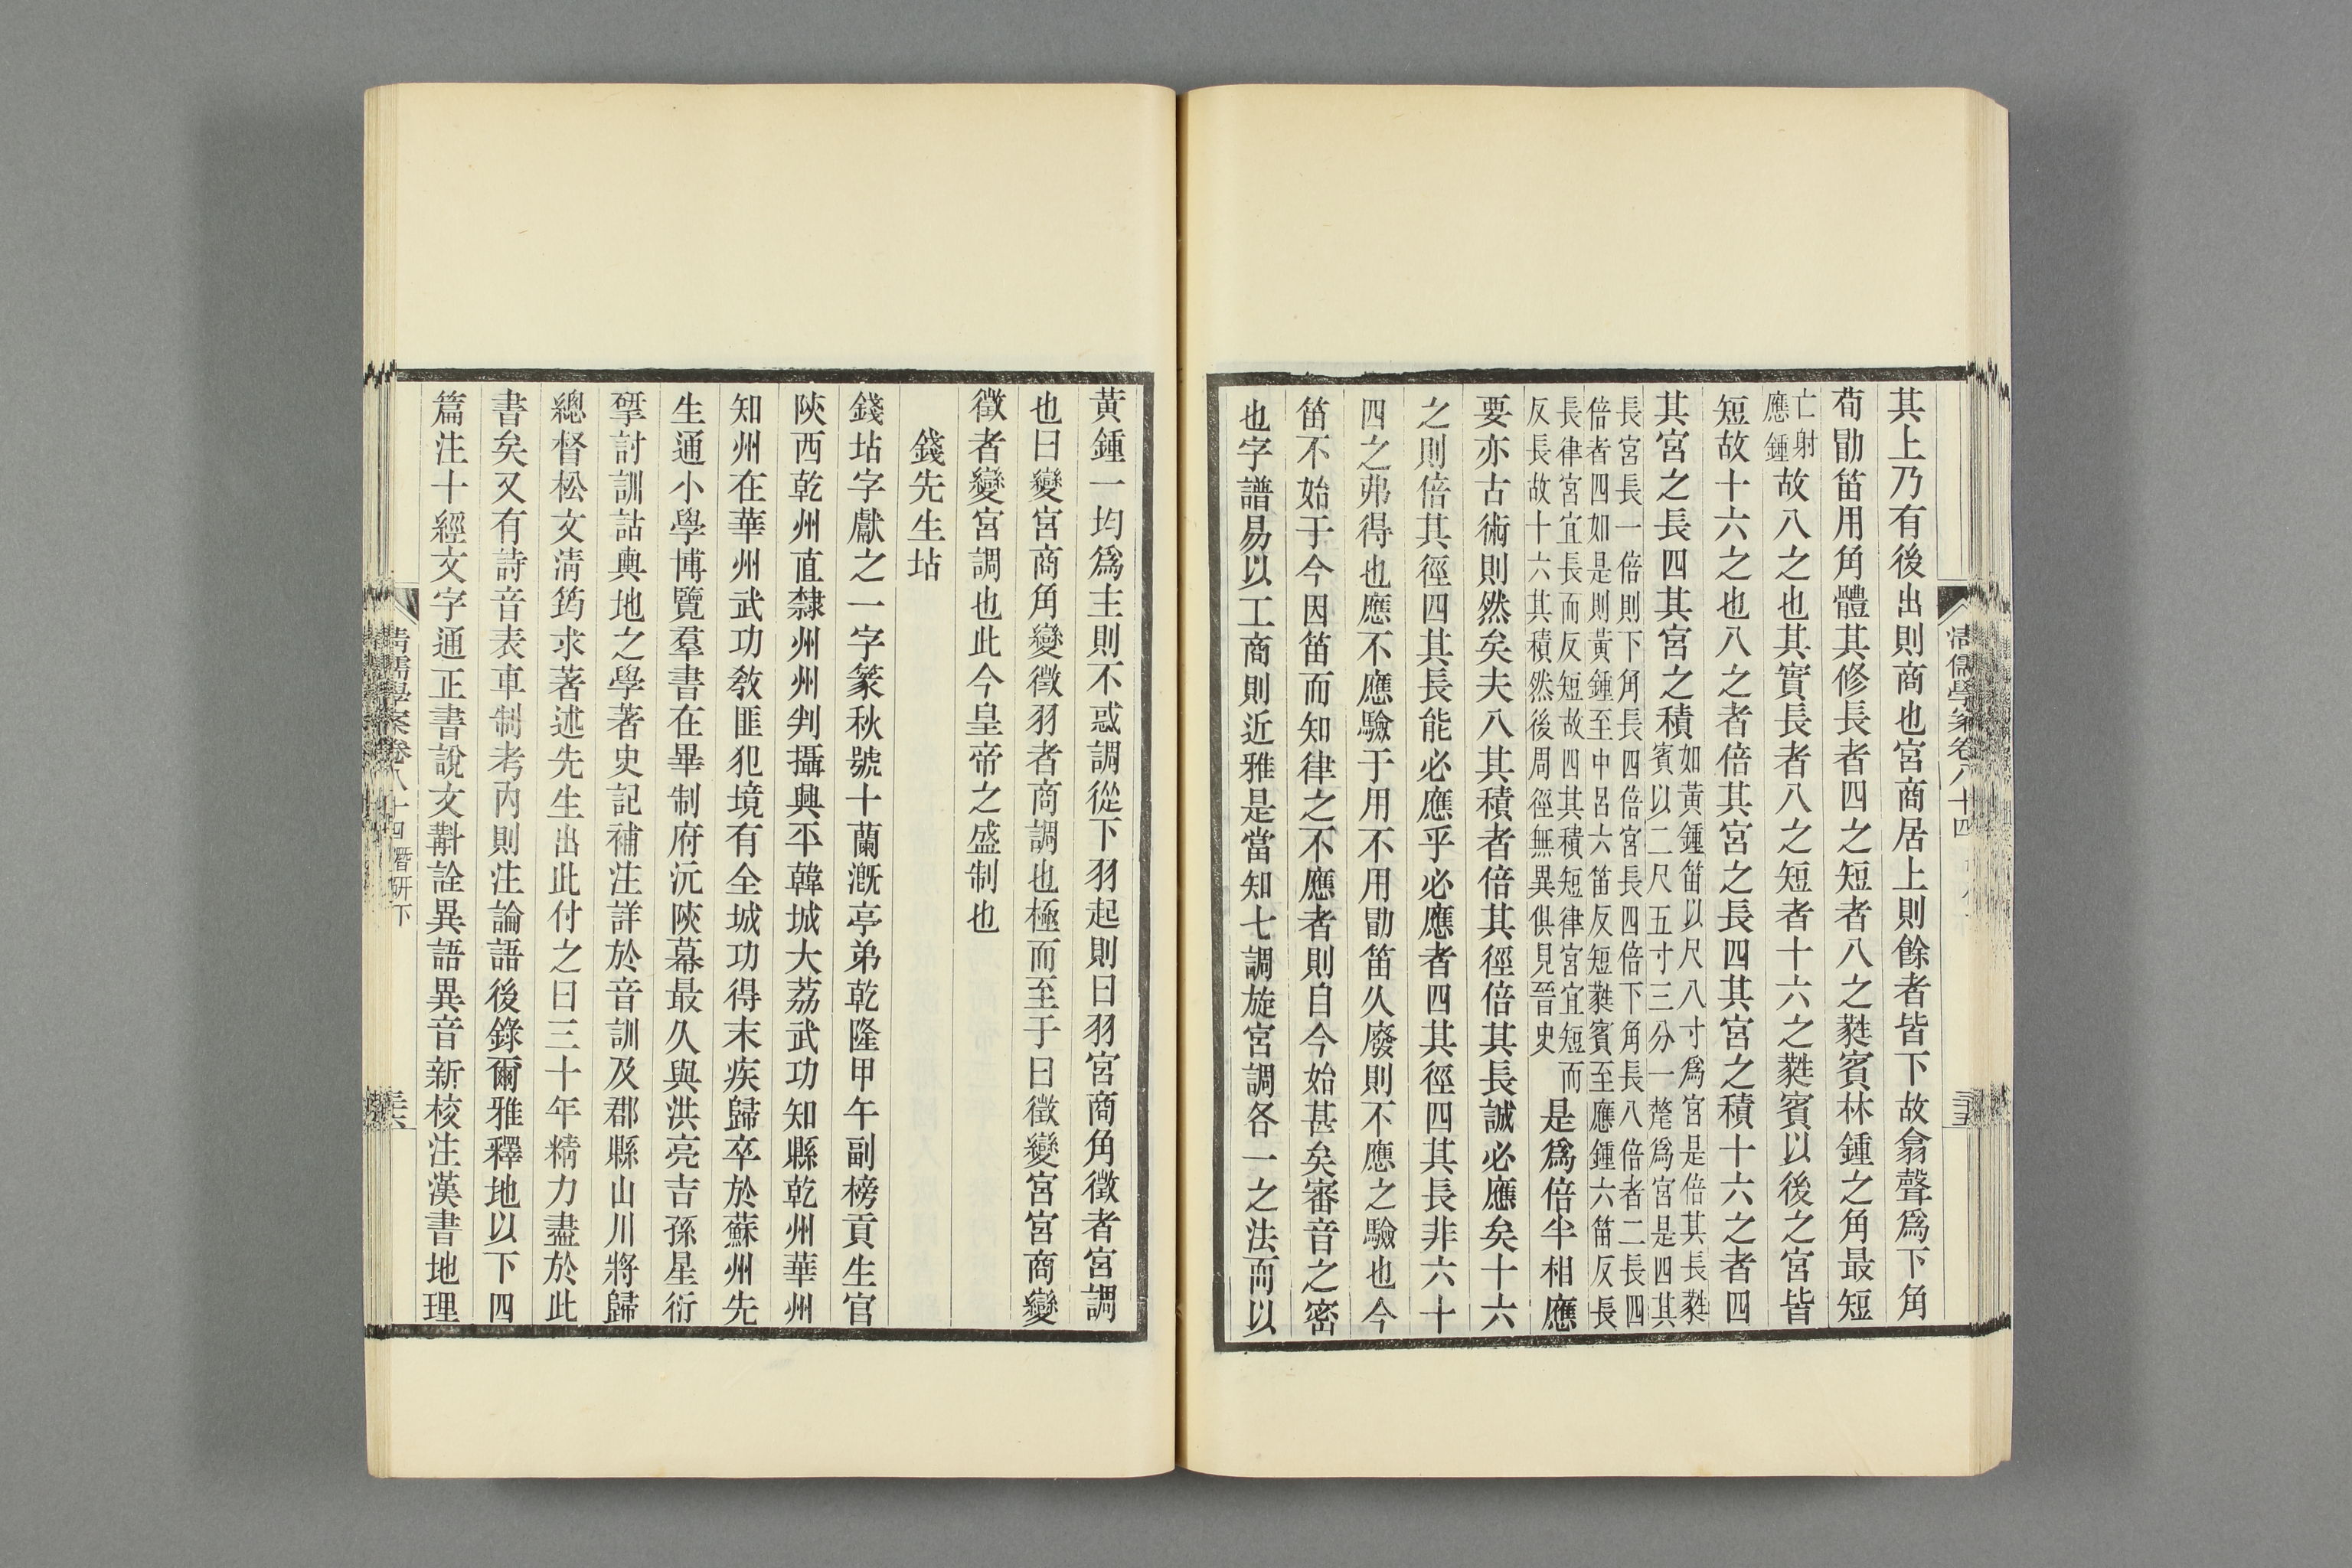 其上乃有後出則商也宮商居上則餘者皆下故翕聲爲下角
荀勖笛用角體其修長者四之短者八之蕤賓林鍾之角最短
亡射
應鍾
故八之也其實長者八之短者十六之蕤賓以後之宮皆
短故十六之也八之者倍其宮之長四其宮之積十六之者四
其宮之長四其宮之積
如黃鍾笛以尺八寸爲宮是倍其長蕤
賓以二尺五寸三分一氂爲宮是四其
長宮長一倍則下角長四倍宮長四倍下角長八倍者二長四
倍者四如是則黃鍾至中呂六笛反短蕤賓至應鍾六笛反長
長律宮宜長而反短故四其積短律宮宜短而
反長故十六其積然後周徑無異俱見晉史
是爲倍半相應
要亦古術則然矣夫八其積者倍其徑倍其長誠必應矣十六
之則倍其徑四其長能必應乎必應者四其徑四其長非六十
四之弗得也應不應驗于用不用勖笛久廢則不應之驗也今
笛不始于今因笛而知律之不應者則自今始甚矣審音之密
也字譜易以工商則近雅是當知七調旋宮調各一之法而以
清儒學案卷八十四
三十五
黃鍾一均爲主則不惑調從下羽起則曰羽宮商角徵者宮調
也曰變宮商角變徵羽者商調也極而至于曰徵變宮宮商變
徵者變宮調也此今皇帝之盛制也
錢先生坫
錢坫字獻之一字篆秋號十蘭漑亭弟乾隆甲午副榜貢生官
陝西乾州直隸州州判攝興平韓城大荔武功知縣乾州華州
知州在華州武功敎匪犯境有全城功得末疾歸卒於蘇州先
生通小學博覽羣書在畢制府沅陝幕最久與洪亮吉孫星衍
揅討訓詁輿地之學著史記補注詳於音訓及郡縣山川將歸
總督松文淸筠求著述先生出此付之曰三十年精力盡於此
書矣又有詩音表車制考內則注論語後錄爾雅釋地以下四
篇注十經文字通正書說文斠詮異語異音新校注漢書地理
清儒學案卷八十四 潛研下
三十六